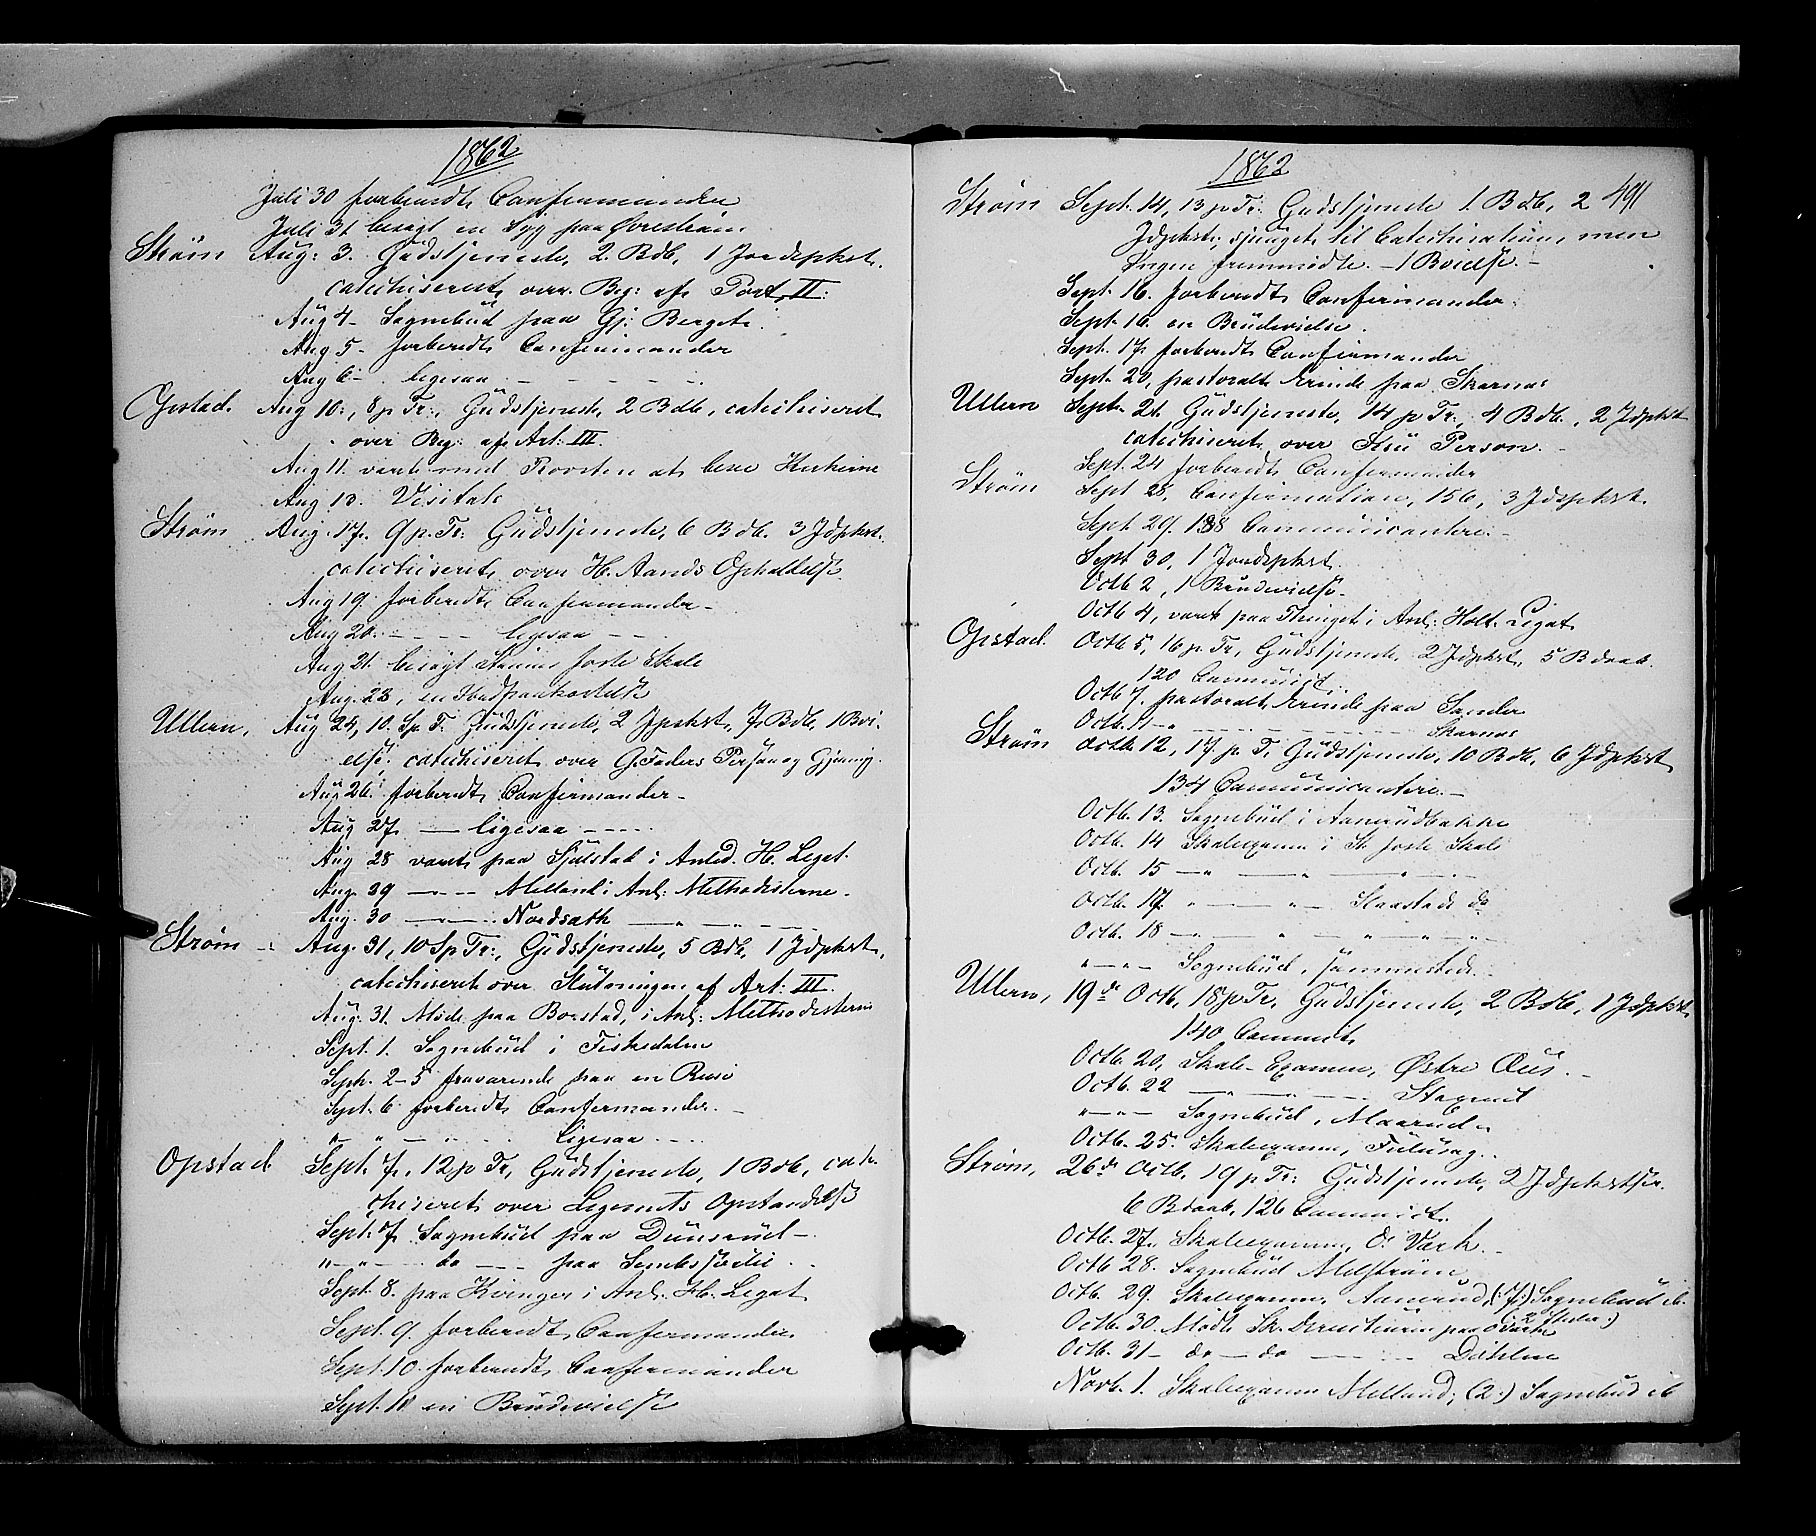 1862
Juli 30 forberedt Confirmander
Juli 31 besøgt en Syg paa Ørestrøm
Strøm Aug: 3. Gudstjeneste, 2 Bdb, 1 Jordspkst.
catechiseret over Beg: af Part II:
Aug 4 - Sognebud paa Gj: Berget.
Aug 5 - forberedt Confirmander
Aug 6 - ligesaa - - - -
Opstad. Aug 10:, 8 p Tr:, Gudstjeneste, 2 Bdb, catechiseret
over Beg: af Art: III.
Aug 11. været med Provsten at bese Kirkerne
Aug 13. Visitats
Strøm Aug. 17. 9 p. Tr: Gudstjeneste, 6 Bdb. 3 Jdpkst.
catechiseret over H. Aands Opholdelse
Aug 19. forberedt Confirmander -
Aug 20. - - - - ligesaa - -
Aug 21. besøgt Sannes faste Skole
Aug. 23, en
Ullern, Aug 24, 10. S p T. Gudstjeneste, 2 Jpskst, 7 Bdb, 1 Bvi-
else, catechiseret over G. Faders Person og Gjerning.
Aug 26. forberedt Confirmander -
Aug 27 - ligesaa - - - -
Aug 28 været paa Sjulstad i Anled. H. Legat.
Aug. 29 - " - - Melland i Anl: Methodisterne.
Aug. 30 - " - Nordsath - " - " -
Strøm - Aug. 31, 10 S p Tr:, Gudstjeneste, 5 Bdb, 1 Jdpkst,
catechiseret over Slutningen af Art: III.
Aug. 31. Møde paa Borstad, i Anl: Methodisterne
Sept. 1. Sognebud i Fiskedalen
Sept. 2-5 fraværende paa en Reise
Sept. 6 forberedt Confirmander. -
" " - " - ligesaa - - -
Opstad Sept. 7, 12 p Tr, Gudstjeneste, 1 Bdb, cate-
chiseret over Legemets Opstandelse
Sept. 7 Sognebud paa Dunserud -
" - " - do - - paa
Sept. 8. paa Kvinger i Anl: H. Legat
Sept. 9. forberedt Confirmander
Sept. 10. forberedt Confirmander
Sept. 11 en Brudevielse
1862
491
Strøm Sept. 14, 13 p Tr: Gudstjeneste 1 Bdb, 2
Jdpkst; sjunget til Catechisation, men
Ingen fremmødte. - 1 Bvielse. -
Sept. 16. forberedt Confirmander.
Sept. 16. en Brudevielse.
Sept. 17. forberedt Confirmander
Sept. 20, pastoralt Ærinde paa Skarnæs
Ullern Sept. 21. Gudstjeneste, 14 p Tr, 4 Bdb, 2 Jdpkst
catechiseret over Jesu Person.
Sept. 24 forberedt Confirmander
Strøm Sept 28, Confirmation, 156, 3 Jdspkst.
Sept 29. 138 Communicantere. -
Sept 30, 1 Jordspkst.
Octb 2, 1 Brudevielse.
Octb 4, været paa Thinget i Anl: Holt. Legat
Opstad. Octb 5, 16 p Tr, Gudstjeneste, 2 Jdpkst, 5 Bdaab.
120 Communict
Octb 7. pastoralt Ærinde paa Sander
Octb. 11 - " - - - - - Skarnæs
Strøm Octb 12, 17 p. T. Gudstjeneste, 10 Bdb, 6 Jdpkst
134 Communicantere. -
Octb. 13. Sognebud i Aamodbakke
Octb. 14 Skoleexamen i St. faste Skole
Octb. 15 - " - " - " -
Octb. 17. " - " - Slaastads do
Octb. 18 - " - " - " - " -
" - " - Sognebud,
Ullern, 19de Octb, 18 p Tr, Gudstjeneste, 2 Bdb, 1 Jdpkst.
140 Communt
Octb. 20, Skole-Examen, Østre Œus. -
Octb. 22 - " - - " - -
" - " - Sognebud, Maarud -
Octb. 25. Skoleexamen, Fuluseg. -
Strøm, 26de Octb, 19 p Tr: Gudstjeneste, 2 Jdpkstser.
6 Bdaab, 126 Communict.
Octb. 27, Skoleexamen, O: Værk -
Octb 28. Sognebud Melstrøm
Octb. 29. Skoleexamen, Aamrud, Sognebud ib.
2 Steder:)
Octb. 30. Møde Sk. Directionen paa O: Værk
Octb. 31 - do - do - - - Dahlen
Novb. 1. Skoleexamen Melland; (2:) Sognebud ib